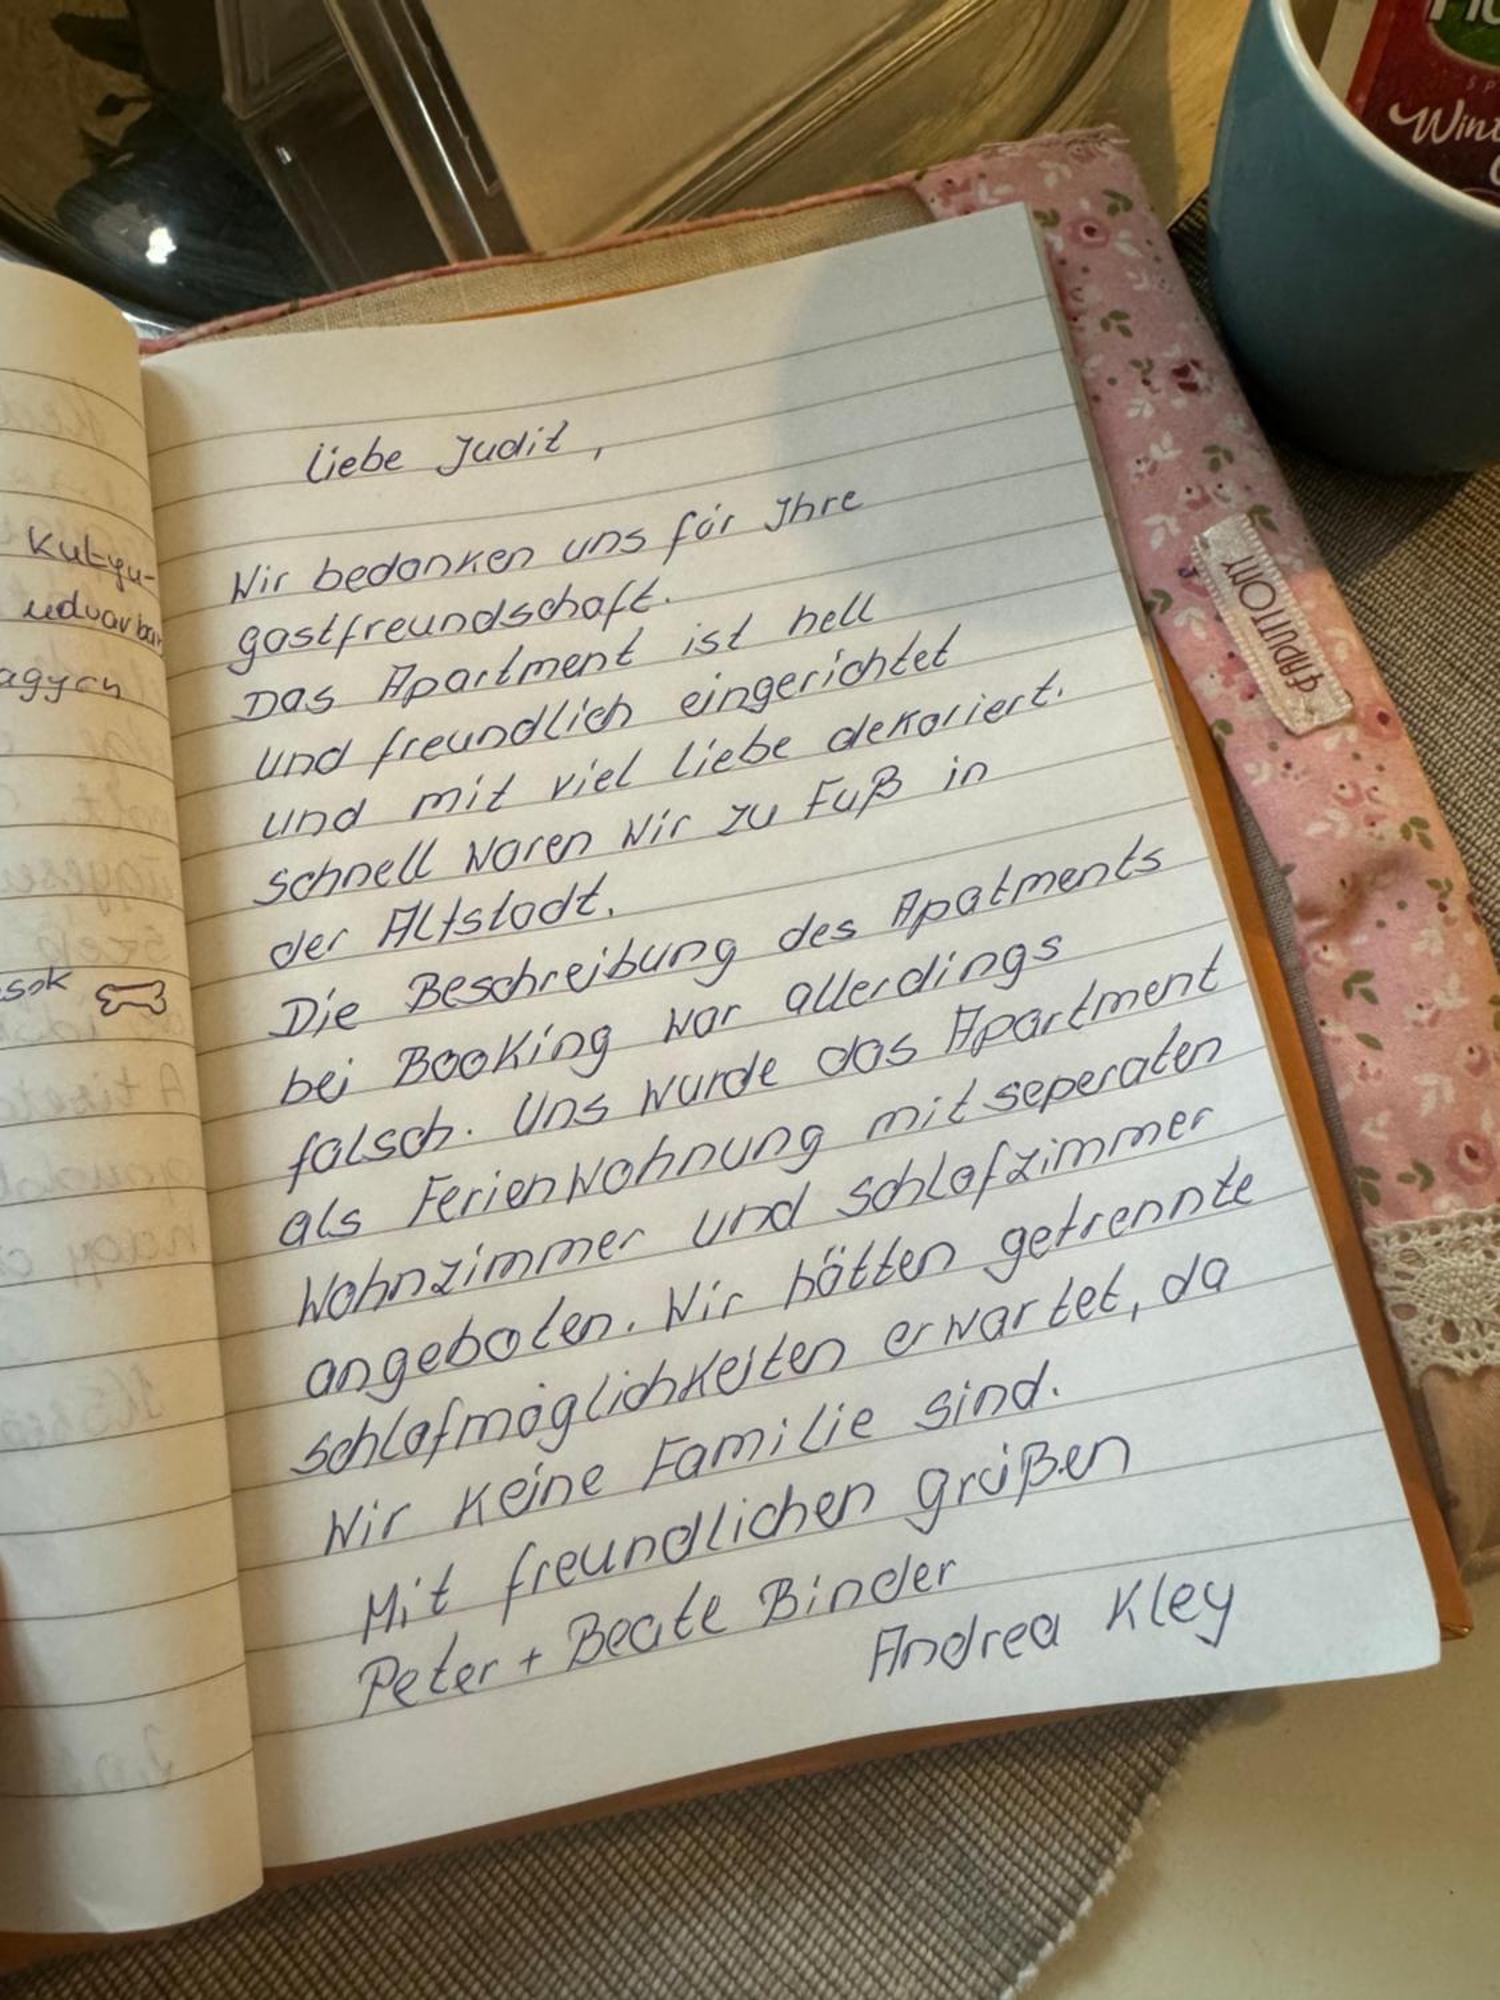 Kutyu-
udvarban
agyon
sok
Liebe Judit,
Wir bedanken uns für Ihre
gastfreundschaft.
Das Apartment ist hell
und freundlich eingerichtet
und mit viel liebe dekoriert.
schnell waren wir zu Fuß in
der Altstadt.
Die Beschreibung des Apatments
bei Booking war allerdings
falsch. Uns wurde das Apartment
als Ferienwohnung mit seperaten
Wohnzimmer und schlafzimmer
angeboten. Wir hätten getrennte
schlafmöglichkeiten erwartet, da
Wir keine Familie sind.
Mit freundlichen grüßen
Peter + Beate Binder
Andrea Kley
FAPUTTONY
Wint